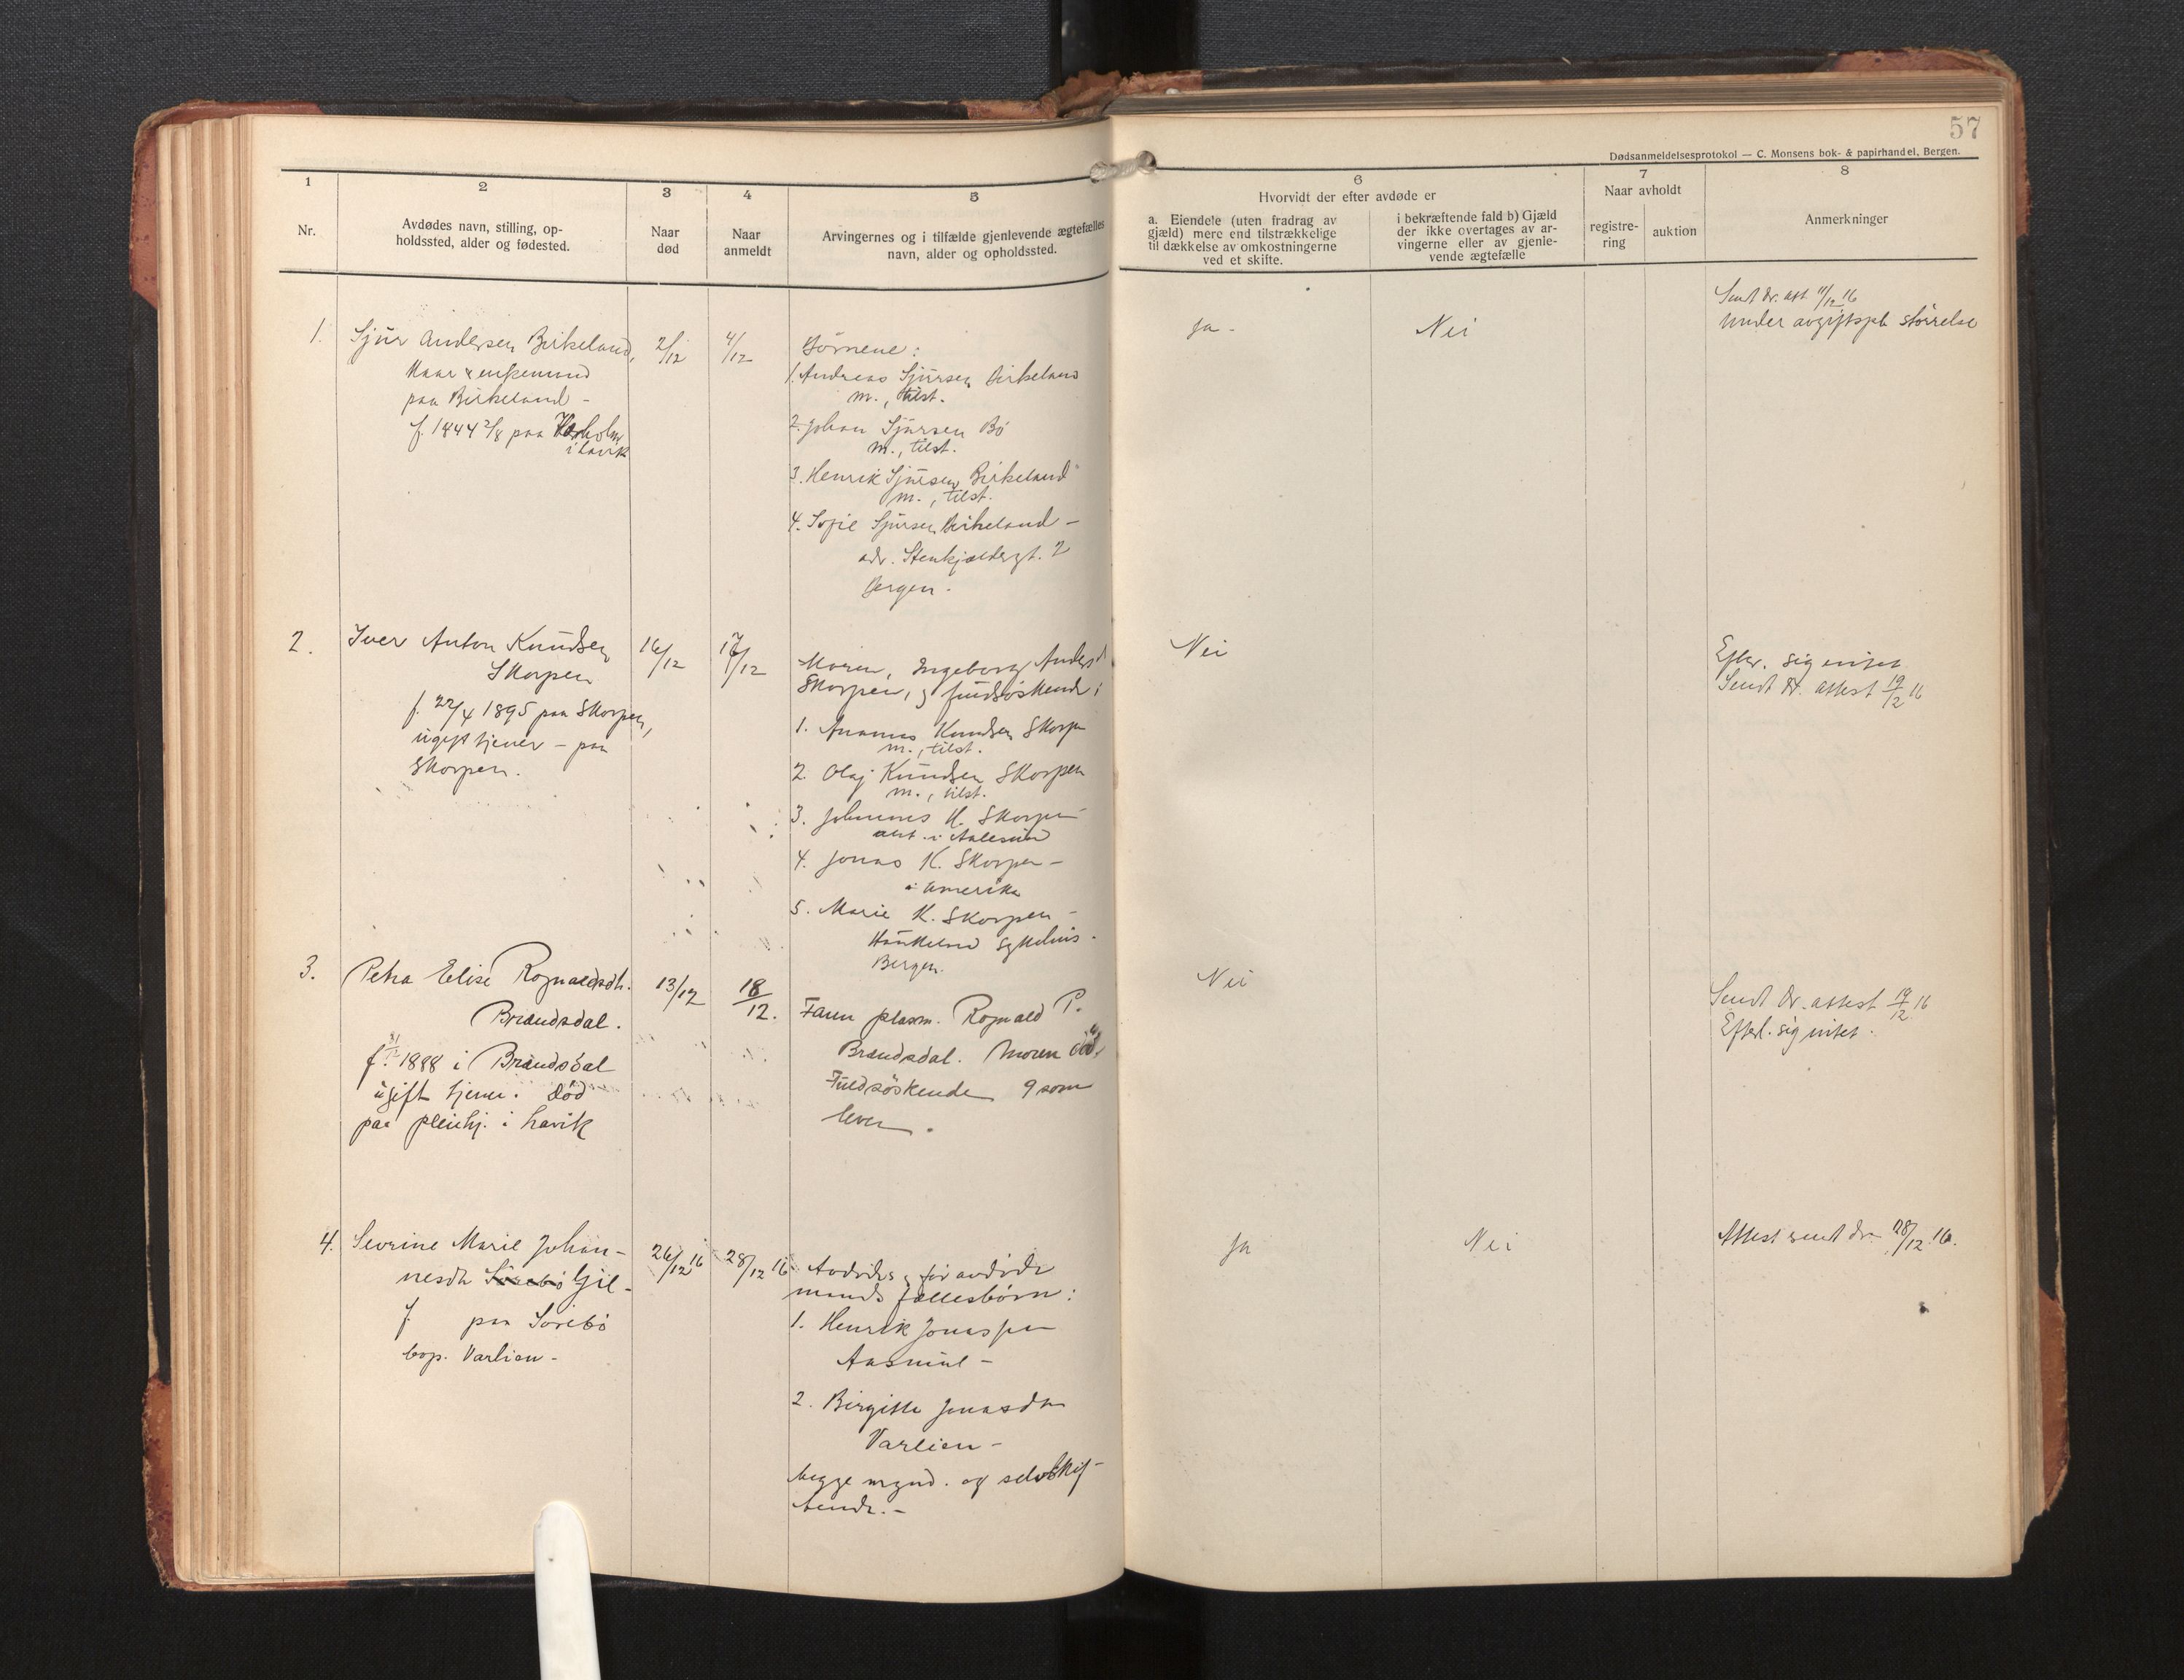 57
Dødsanmeldelsesprotokol — C. Monsens bok- & papirhandel, Bergen.
1
Nr.
2
Avdødes navn, stilling, op-
holdssted, alder og fødested.
3
Naar
død
4
Naar
anmeldt
5
Arvingernes og i tilfælde gjenlevende ægtefælles
navn, alder og opholdssted.
6
Hvorvidt der efter avdøde er
a. Eiendele (uten fradrag av
gjæld) mere end tilstrækkelige
til dækkelse av omkostningerne
ved et skifte.
i bekræftende fald b) Gjæld
der ikke overtages av ar-
vingerne eller av gjenle-
vende ægtefælle
7
Naar avholdt
registre-
ring
auktion
8
Anmerkninger
1.
Sjur Andersen Birkeland,
enkemand
paa Birkeland -
f. 1844 2/8 paa
i Lavik
2/12
4/12
Børnene:
1. Andreas Sjursen Birkeland
m., tilst.
2. Johan Sjursen Bö
m., tilst.
3. Henrik Sjursen Birkeland
m., tilst.
4. Sofie Sjursen Birkeland -
adr. Stenkjældergt. 2
Bergen -
Ja -
Nei
Sendt dr. att. 11/12 16
Under avgiftspl. størrelse
2.
Iver Anton Knudsen
Skorpen
f. 22/4 1895 paa Skorpen,
ugift tjener - paa
Skorpen.
16/12
17/12
Moren, Ingeborg Andersd
Skorpen, og fuldsøskende:
1. Knudsen Skorpen
m., tilst.
2. Olaj Knudsen Skorpen
m., tilst.
3. Johannes K. Skorpen
i Aalesund
4. Jonas K. Skorpen -
i Amerika
5. Marie K. Skorpen -
Haukeland sykehus -
Bergen.
Nei
Efterl. sig intet
Sendt dr. attest 19/12 16
3.
Petra Elise Rognaldsdtr.
Brandsdal.
f. 1888 i Brandsdal
ugift tjener. Död
paa pleiehj. i Lavik
13/12
18/12.
Faren plasm. Rognald P.
Brandsdal. Moren död.
Fuldsöskende 9 som
lever.
Nei
Sendt dr. attest 19/12 16
Efterl. sig intet.
4.
Sevrine Marie Johan-
nesdtr Sörebö Gil-
f. paa Sörebö
bop. Varlien -
26/12 16
28/12 16
Avdödes og för avdöde
mands fællesbörn:
1. Henrik Jonassen
Aasmul -
2. Birgitte Jonasdtr
Varlien -
begge mynd. og selvskif-
tende. -
Ja
Nei
Attest sendt dr. 28/12 16.